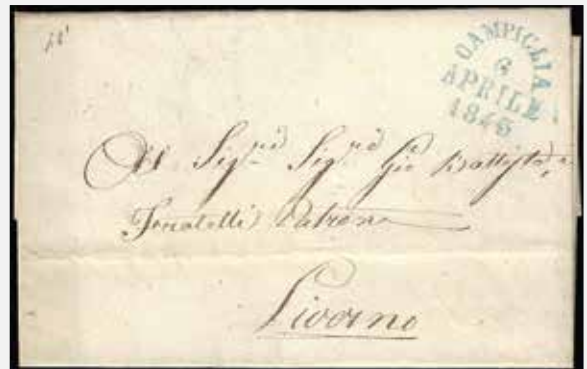 CAMPIGLIA
6
APRILE
1845
Al Sig.re Sig.re Gio Battista
Fratelli Patrone
Livorno